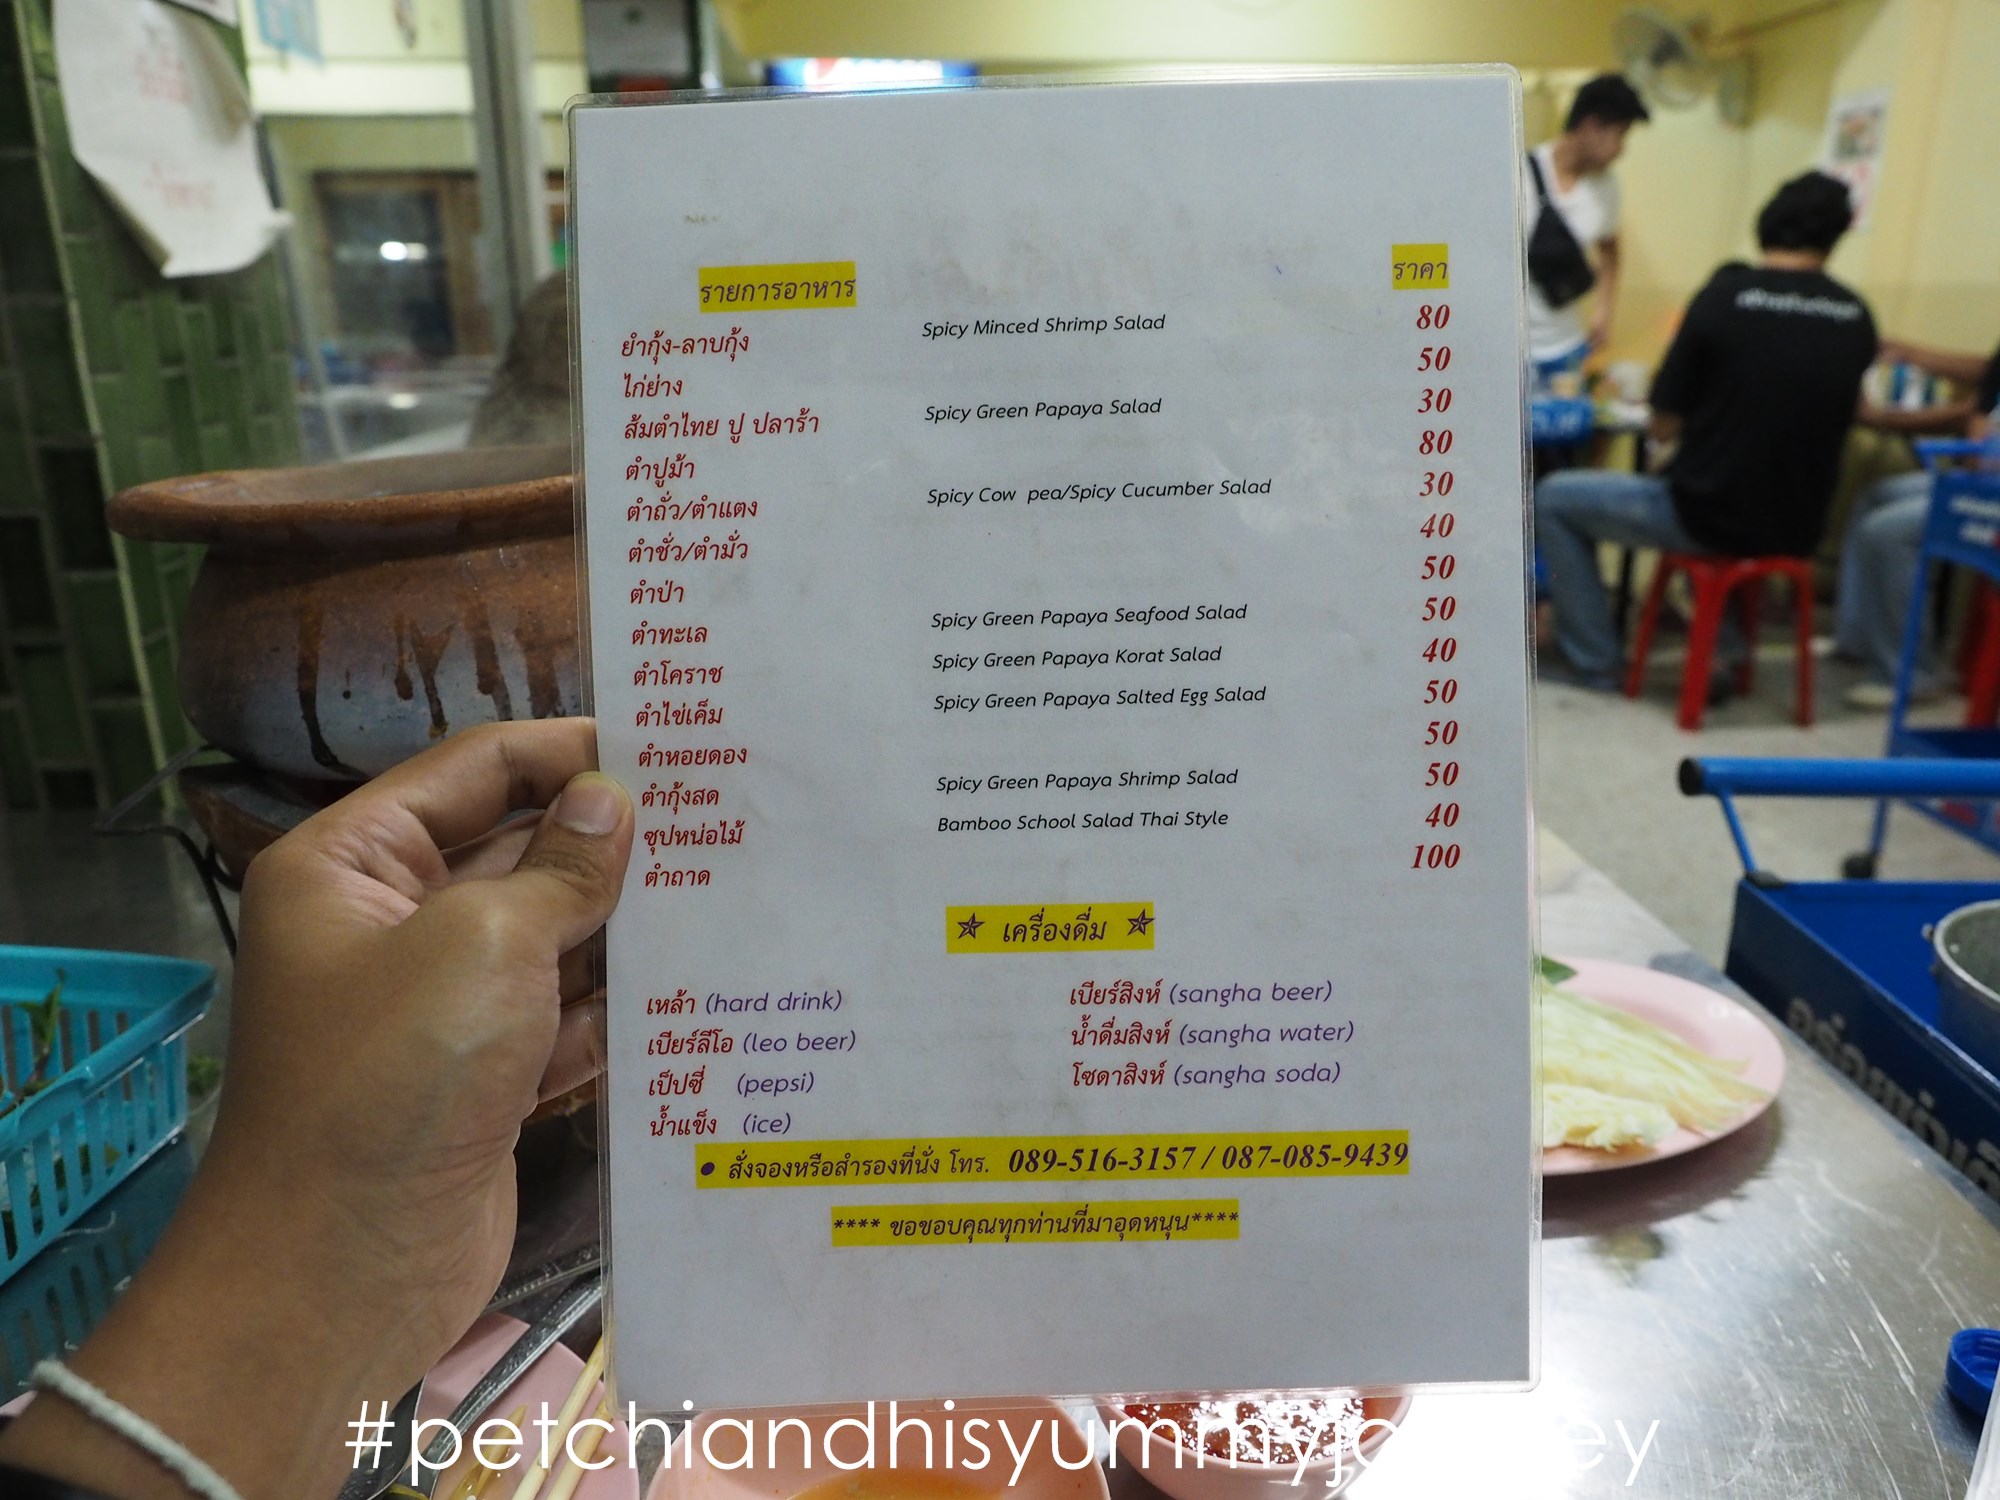 รายการอาหาร ราคา
ยำกุ้ง-ลาบกุ้ง Spicy Minced Shrimp Salad 80
ไก่ย่าง 50
ส้มตำไทย ปู ปลาร้า Spicy Green Papaya Salad 30
ตำปูม้า 80
ตำถั่ว/ตำแตง Spicy Cow pea/Spicy Cucumber Salad 30
ตำซั่ว/ตำมั่ว 40
ตำป่า 50
ตำทะเล Spicy Green Papaya Seafood Salad 50
ตำโคราช Spicy Green Papaya Korat Salad 40
ตำไข่เค็ม Spicy Green Papaya Salted Egg Salad 50
ตำหอยดอง 50
ตำกุ้งสด Spicy Green Papaya Shrimp Salad 50
ซุปหน่อไม้ Bamboo School Salad Thai Style 40
ตำถาด 100
เครื่องดื่ม
เหล้า (hard drink) เบียร์สิงห์ (sangha beer)
เบียร์ลีโอ (leo beer) น้ำดื่มสิงห์ (sangha water)
เป็ปซี่ (pepsi) โซดาสิงห์ (sangha soda)
น้ำแข็ง (ice)
• สั่งจองหรือสำรองที่นั่ง โทร. 089-516-3157 / 087-085-9439
**** ขอขอบคุณทุกท่านที่มาอุดหนุน****